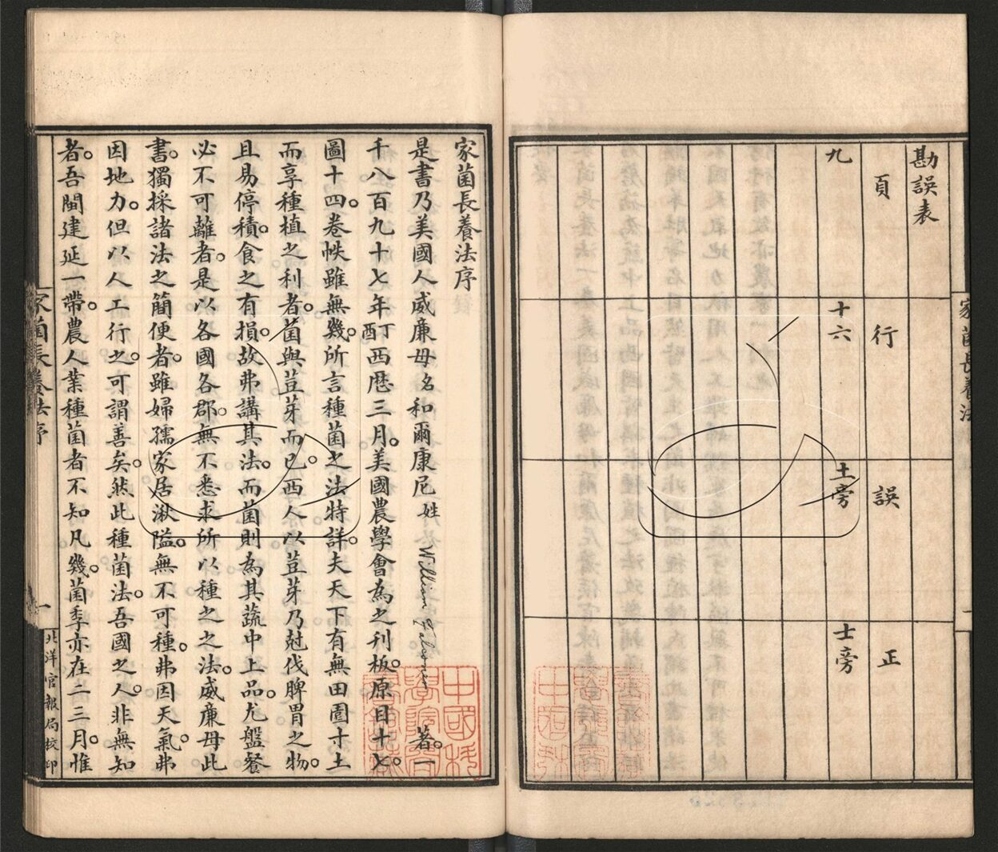 勘誤表
頁 行 誤 正
九 十六 土旁 士旁
家菌長養法
家菌長養法序
是書乃美國人威廉母名和爾康尼姓 著。一
千八百九十七年丁酉西歷三月。美國農學會為之利板。原目十七。
圖十四。卷帙雖無幾。所言種菌之法特詳。夫天下有無田園寸土
而享種植之利者。菌與荳芽而已。西人以荳芽乃尅伐脾胃之物。
且易停積。食之有損。故弗講其法。而菌則為其蔬中上品。尤盤餐
必不可離者。是以各國各郡。無不悉求所以種之之法。威廉母此
書。獨採諸法之簡便者。雖婦孺家居湫隘。無不可種。弗因天氣。弗
因地力。但以人工行之。可謂善矣。然此種菌法。吾國之人。非無知
者。吾閩建延一帶。農人業種菌者不知凡幾。菌季亦在二三月。惟
家菌長養法序
一
北洋官報局校印